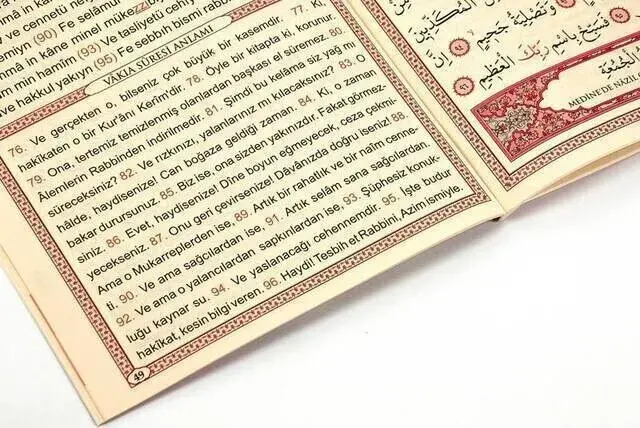 ve cenneti
(90) Fe selâmu
in kâne minel
min hamîm (93) Ve tasliyetü
ve hakkul yakıyn (95) Fe sebbıh bismi
VÂKIA SÛRESİ ANLAMI
76. Ve gerçekten o, bilseniz çok büyük bir kasemdir. 77. Ki,
hakikaten o bir Kur'ânı Kerîm'dir. 78. Öyle bir kitapta ki, korunur.
79. Ona, tertemiz temizlenmiş olanlardan başkası el süremez. 80.
Âlemlerin Rabbinden indirilmedir. 81. Şimdi bu kelâma siz yağ mı
süreceksiniz? 82. Ve rızkınızı, yalanlarınız mı kılacaksınız? 83. O
hâlde, haydisenize! Can boğaza geldiği zaman. 84. Ki, o zaman
bakar durursunuz. 85. Biz ise, ona sizden yakınızdır. Fakat görmez-
siniz. 86. Evet, haydisenize! Dîne boyun eğmeyecek, ceza çekmi-
yecekseniz. 87. Onu geri çevirsenize! Dâvânızda doğru iseniz! 88.
Ama o Mukarreplerden ise, 89. Artık bir rahatlık ve bir naîm cenne-
ti. 90. Ve ama sağcılardan ise, 91. Artık selâm sana sağcılardan.
92. Ve ama o yalancılardan sapkınlardan ise, 93. Şüphesiz konuk-
luğu kaynar su. 94. Ve yaslanacağı cehennemdir. 95. İşte budur
hakîkat, kesin bilgi veren. 96. Haydi! Tesbih et Rabbini, Azim ismiyle.
49
الْمُكَذِّبِينَ
وَتَصْلِيَةُ جَحِيمٍ ٩٤
٩٥ فَسَبِّحْ بِاسْمِ رَبِّكَ الْعَظِيمِ ٩٦
الْجُمُعَةِ
MEDİNE'DE